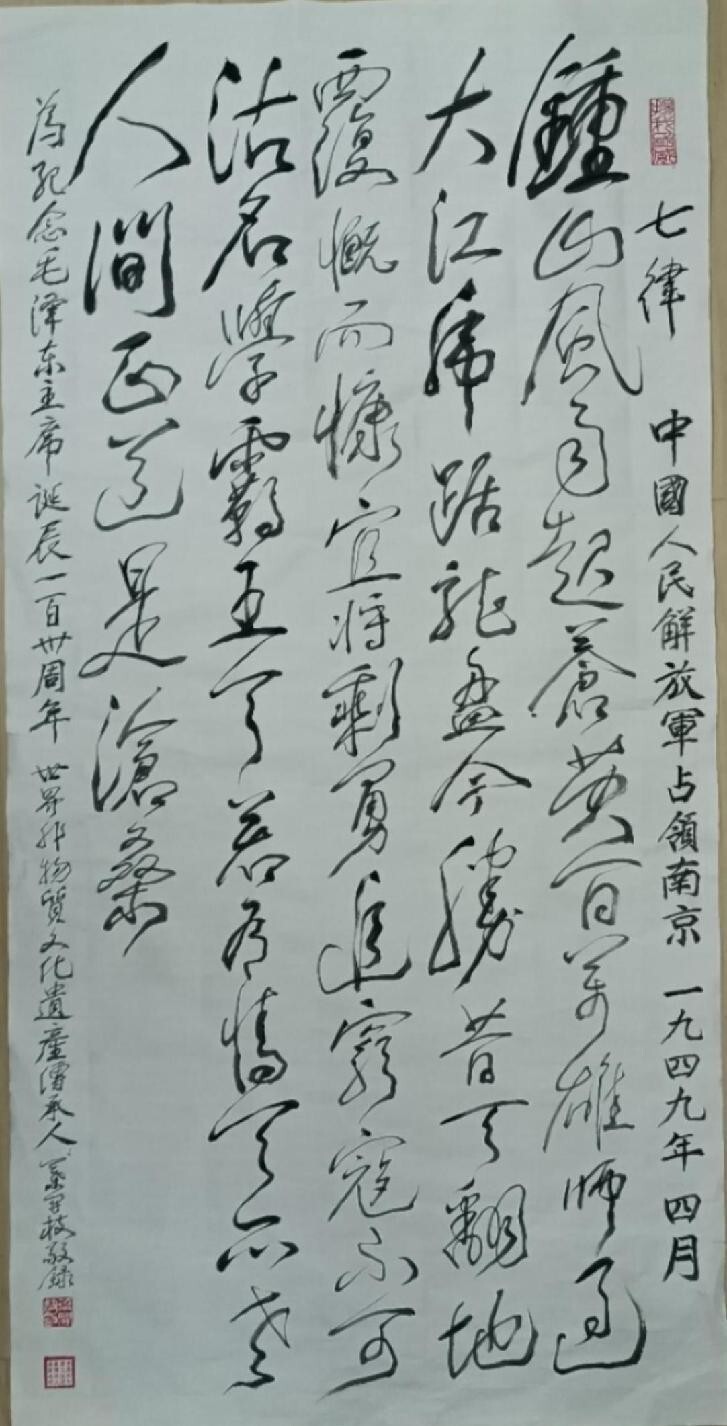 七律 中國人民解放軍占領南京 一九四九年四月
鍾山風雨起蒼黄百萬雄師過
大江虎踞龍盤今勝昔天翻地
覆慨而慷宜將剩勇追窮寇不可
沽名學霸王天若有情天亦老
人間正道是滄桑
為紀念毛澤东主席誕辰一百卅周年 世界非物質文化遺產傳承人 枝敬錄